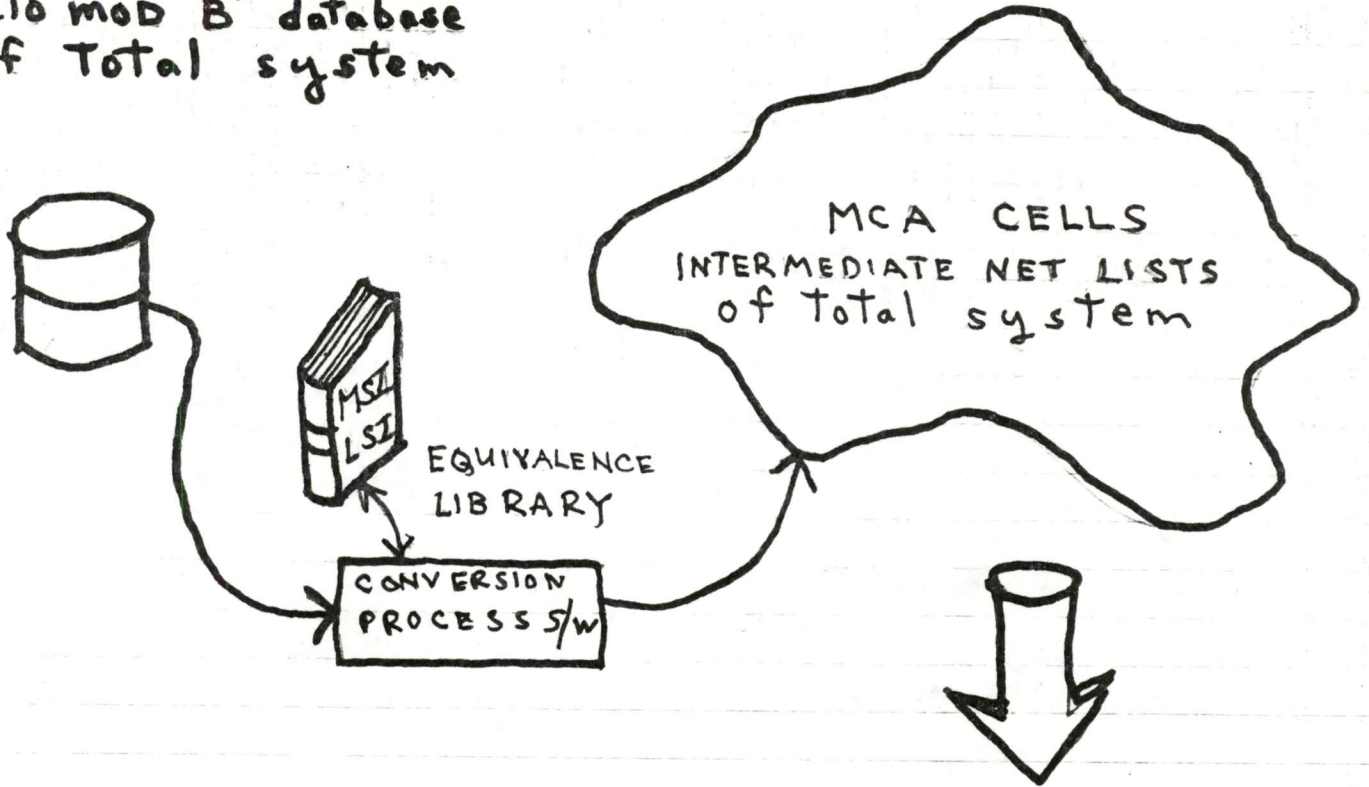 mod B database
of Total system
MCA CELLS
INTERMEDIATE NET LISTS
of Total system
MSI
LSI
EQUIVALENCE
LIBRARY
CONVERSION
PROCESS S/W